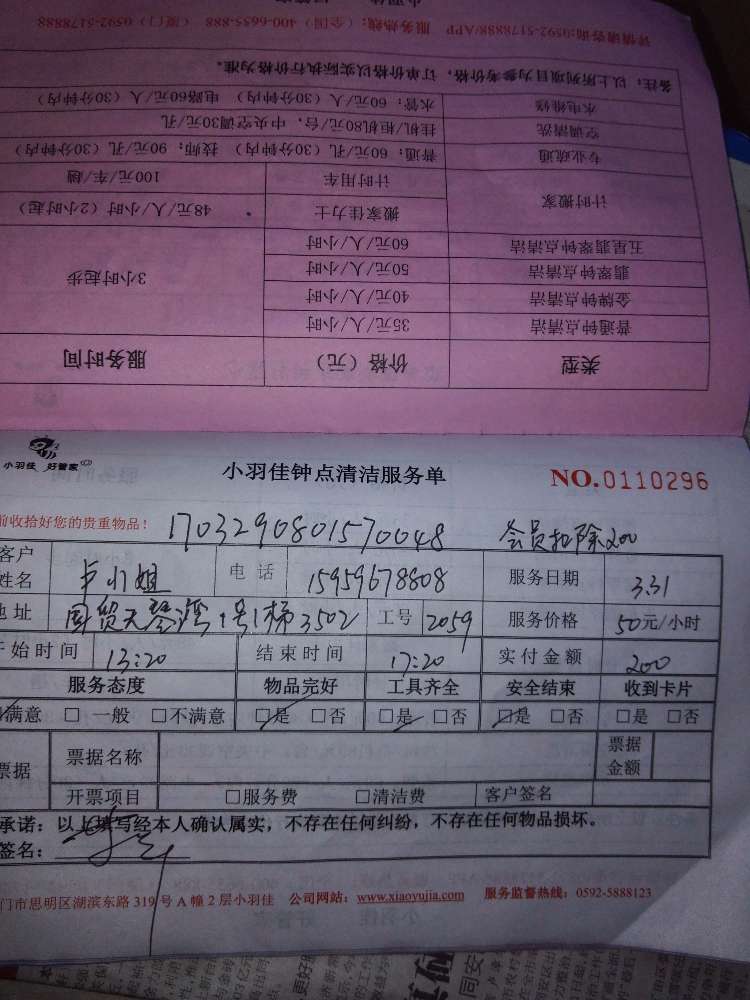 类型 价格（元） 服务时间
普通钟点清洁 35元/人/小时
金牌钟点清洁 40元/人/小时
翡翠钟点清洁 50元/人/小时 3小时起步
五星翡翠钟点清洁 60元/人/小时
计时搬家 搬家佳力士 48元/人/小时（2小时起）
计时用车 100元/车/趟
专业疏通 普通：60元/孔（30分钟内） 技师：90元/孔（30分钟内）
空调清洗 挂机/柜机80元/台，中央空调30元/孔
水电维修 水管：60元/人（30分钟内） 电路60元/人（30分钟内）
备注：以上所列项目为参考价格，订单价格以实际执行价格为准。
详情请咨询:0592-5178888/APP 服务热线：（全国）400-6655-888（厦门）0592-5178888
小羽佳 好管家
小羽佳钟点清洁服务单 NO.0110296
前收拾好您的贵重物品！ 1703290801570048 会员扣除200
客户姓名 卢小姐 电话 15959678808 服务日期 3.31
地址 国贸天琴湾1号1梯3502 工号 2059 服务价格 50元/小时
开始时间 13:20 结束时间 17:20 实付金额 200
服务态度 物品完好 工具齐全 安全结束 收到卡片
满意 □ 一般 □不满意 □是 □否 □是 □否 □是 □否 □是 □否
票据 票据名称 票据金额
开票项目 □服务费 □清洁费 客户签名
承诺：以上填写经本人确认属实，不存在任何纠纷，不存在任何物品损坏。
签名：
门市思明区湖滨东路319号A幢2层小羽佳 公司网站：www.xiaoyujia.com 服务监督热线：0592-5888123